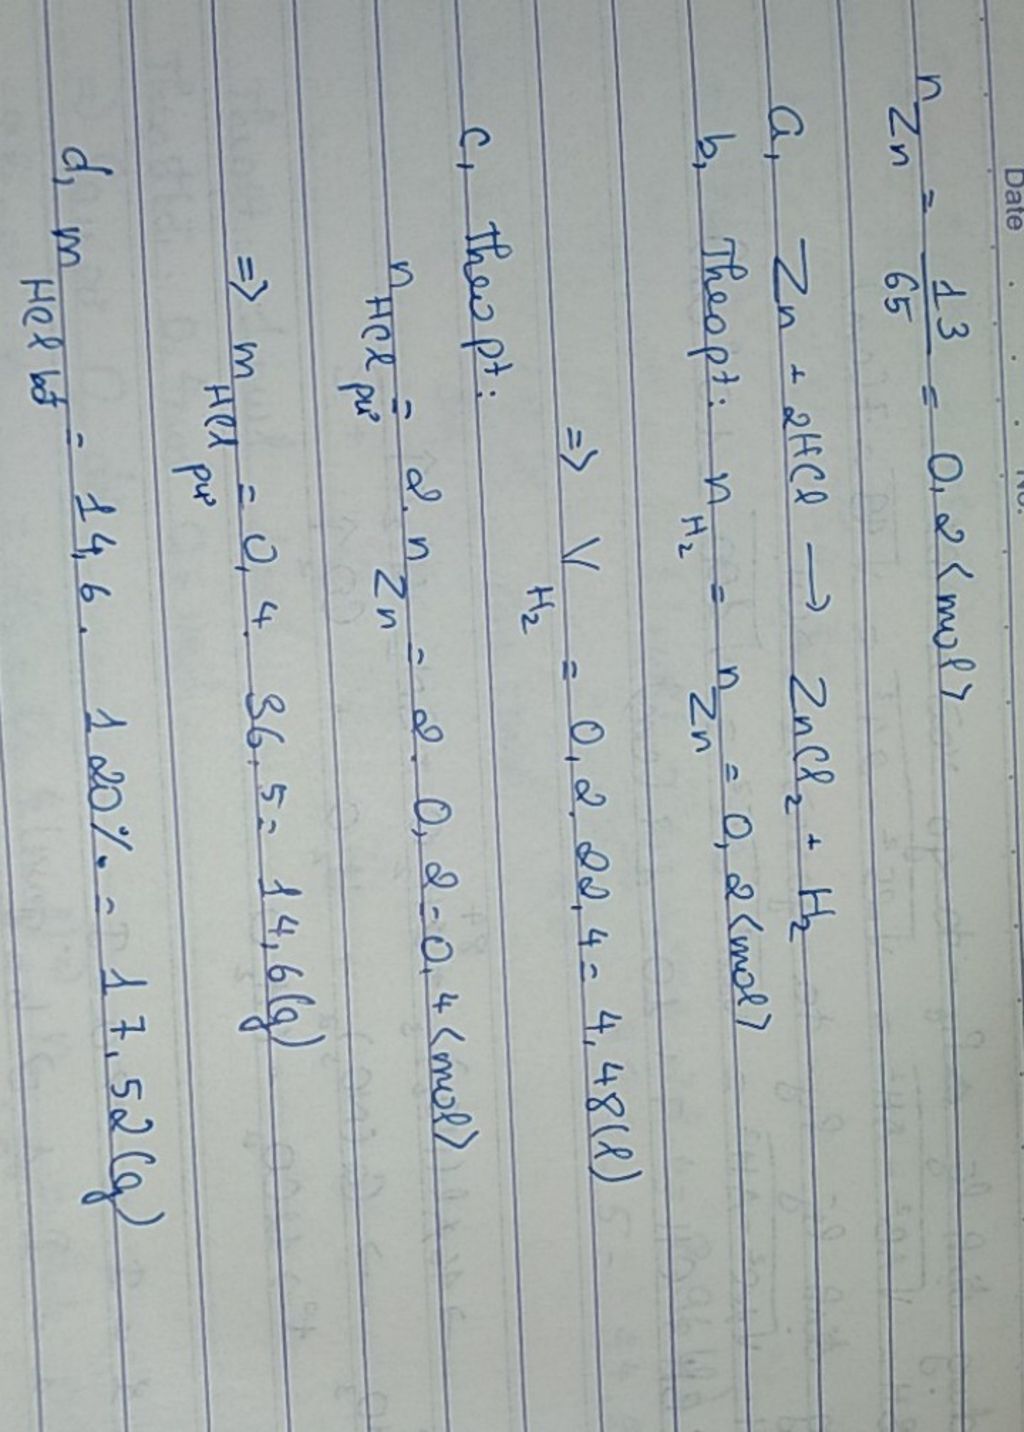 Date No.
n Zn = 13/65 = 0,2 <mol>
a, Zn + 2HCl → ZnCl2 + H2
b, Theo pt: n H2 = n Zn = 0,2 <mol>
=> V H2 = 0,2. 22,4 = 4,48 (l)
c, Theo pt:
n HCl pư = 2. n Zn = 2. 0,2 = 0,4 <mol>
=> m HCl pư = 0,4. 36,5 = 14,6 (g)
d, m HCl bđ = 14,6. 120% = 17,52 (g)